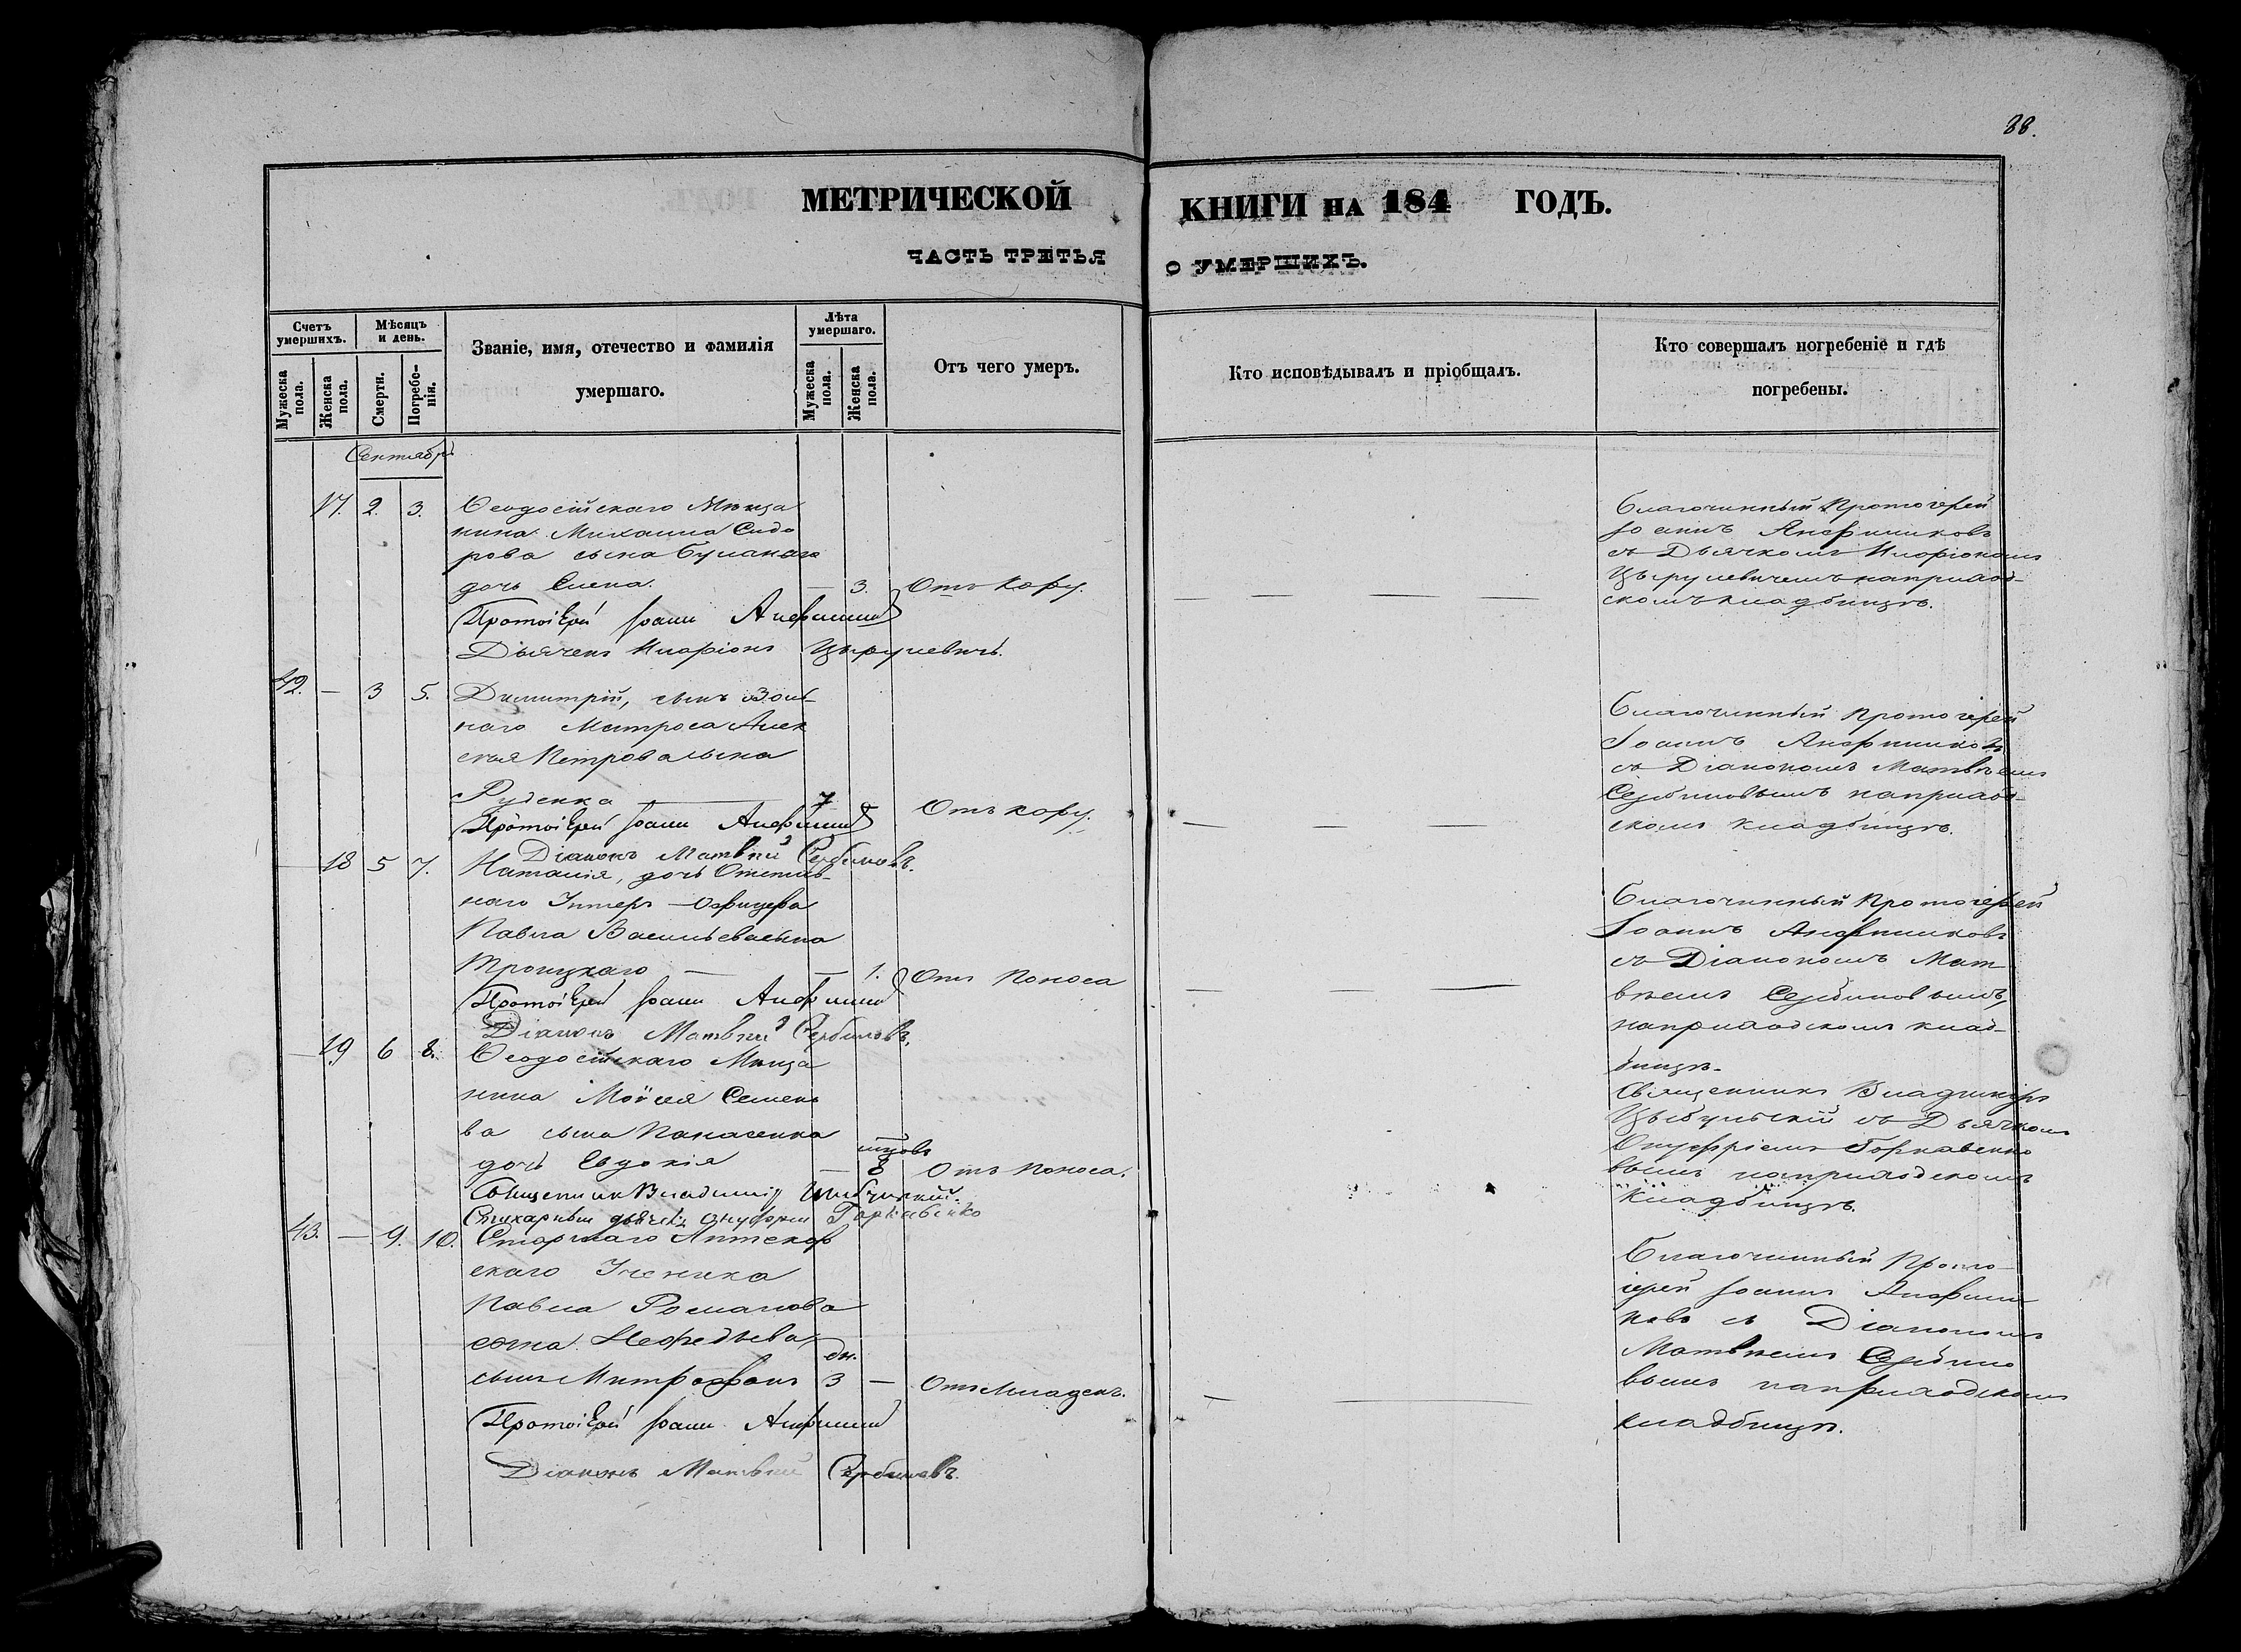 88.
МЕТРИЧЕСКОЙ КНИГИ НА 184 ГОДЪ.
ЧАСТЬ ТРЕТЬЯ О УМЕРШИХЪ.
Счетъ умершихъ.
Мужеска пола.
Женска пола.
Мѣсяцъ и день.
Смерти.
Погребе-нія.
Званіе, имя, отечество и фамилія
умершаго.
Лѣта умершаго.
Мужеска пола.
Женска пола.
Отъ чего умеръ.
Кто исповѣдывалъ и пріобщалъ.
Кто совершалъ погребеніе и гдѣ
погребены.
Сентябрь
17. 2. 3. Ѳеодосійскаго Мѣща
нина Михаила Сидо
рова сына Буланаго
дочь Елена. — 3. Отъ Кору.
Протоіерей Іоаннъ
Дьячекъ Иларіонъ Цырулевичъ.
Благочинный Протоіерей
Іоаннъ Анфимиковъ
съ Дьячкомъ Иларіономъ
Цырулевичемъ на приход-
скомъ кладбищѣ.
42. — 3 5. Димитрій, сынъ Воль-
наго Матроса Алек
сѣя Петрова сына
Руденка — 7 Отъ кору.
Протоіерей Іоаннъ
Діаконъ Матвѣй Сербиновъ.
Благочинный Протоіерей
Іоаннъ Анфимиковъ
съ Діакономъ Матвѣемъ
Сербиновымъ на приход-
скомъ кладбищѣ.
— 18 5 7. Наталія, дочь Отстав-
наго Унтеръ-Офицера
Павла Васильева сына
Троицкаго — — 1. Отъ Поноса
Протоіерей Іоаннъ
Діаконъ Матвѣй Сербиновъ.
Благочинный Протоіерей
Іоаннъ Анфимиковъ
съ Діакономъ Мат
вѣемъ Сербиновымъ,
на приходскомъ клад-
бищѣ.
— 19 6 8. Ѳеодосійскаго Мѣща
нина Моѵсея Семено
ва сына Панасенка
дочь Евдокія — 8 Отъ Поноса.
Священникъ Владиміръ Цыбульскій.
Стихарный дьячекъ Онуфрій Горкавенко
Священникъ Владиміръ
Цыбульскій съ Дьячкомъ
Онуфріемъ Горкавенко
вымъ на приходскомъ
кладбищѣ.
43. — 9. 10. Старшаго Аптекар
скаго Ученика
Павла Романова
сына Нефедьева,
дн.
сынъ Митрофанъ 3 — Отъ Младен.
Протоіерей Іоаннъ
Діаконъ Матвѣй Сербиновъ.
Благочинный Прото-
іерей Іоаннъ Анфими
ковъ съ Діакономъ
Матвѣемъ Сербино
вымъ на приходскомъ
кладбищѣ.